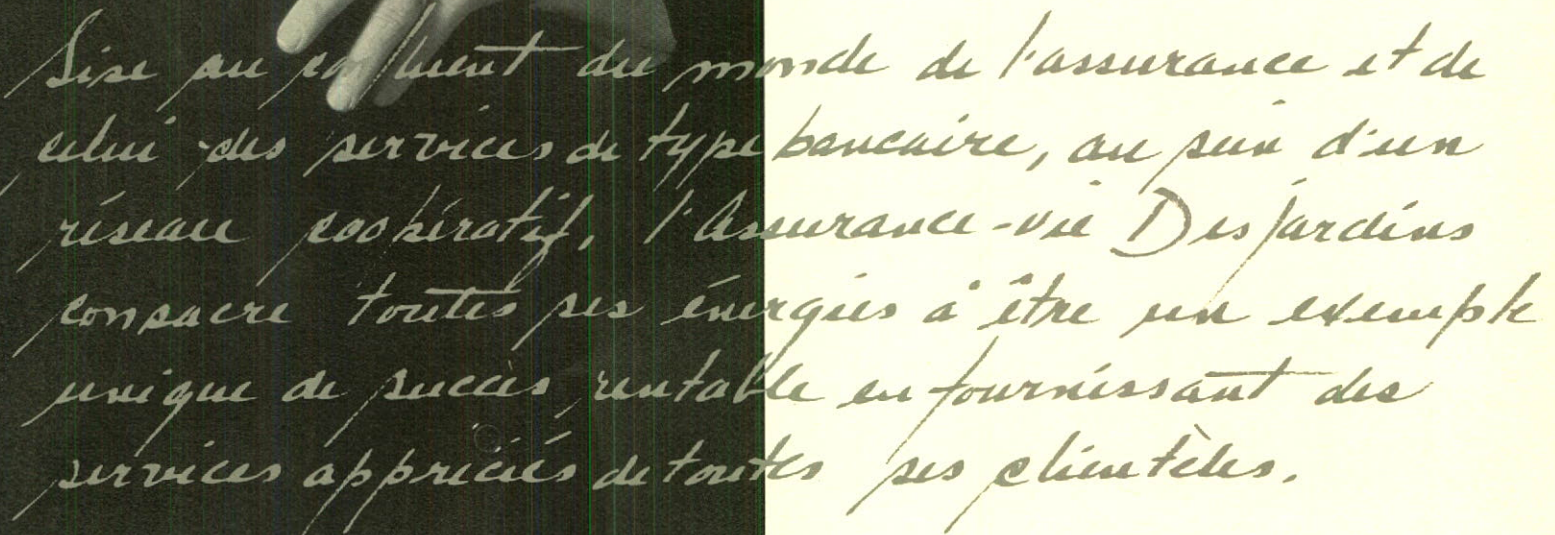 Sise au du monde de l'assurance et de
celui des services de type bancaire, au sein d'un
réseau coopératif, l'Assurance-vie Desjardins
consacre toutes ses énergies à être un exemple
unique de succès, rentable en fournissant des
services appréciés de toutes ses clientèles.